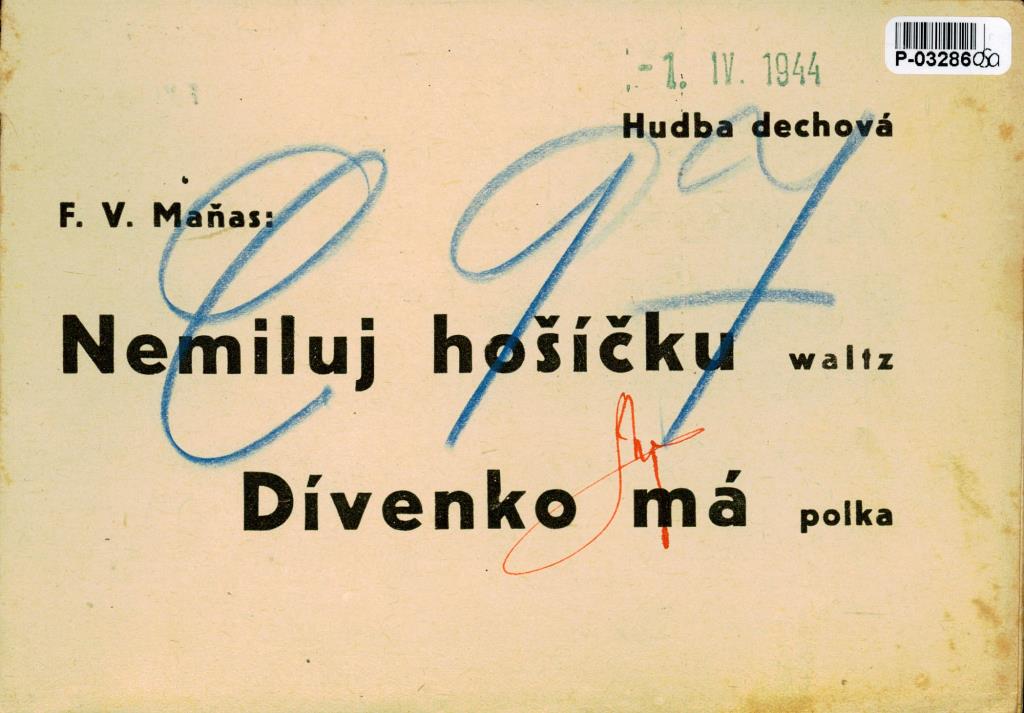 P-03286
- 1. IV. 1944
Hudba dechová
F. V. Maňas:
C 97
Nemiluj hošíčku waltz
Dívenko má polka